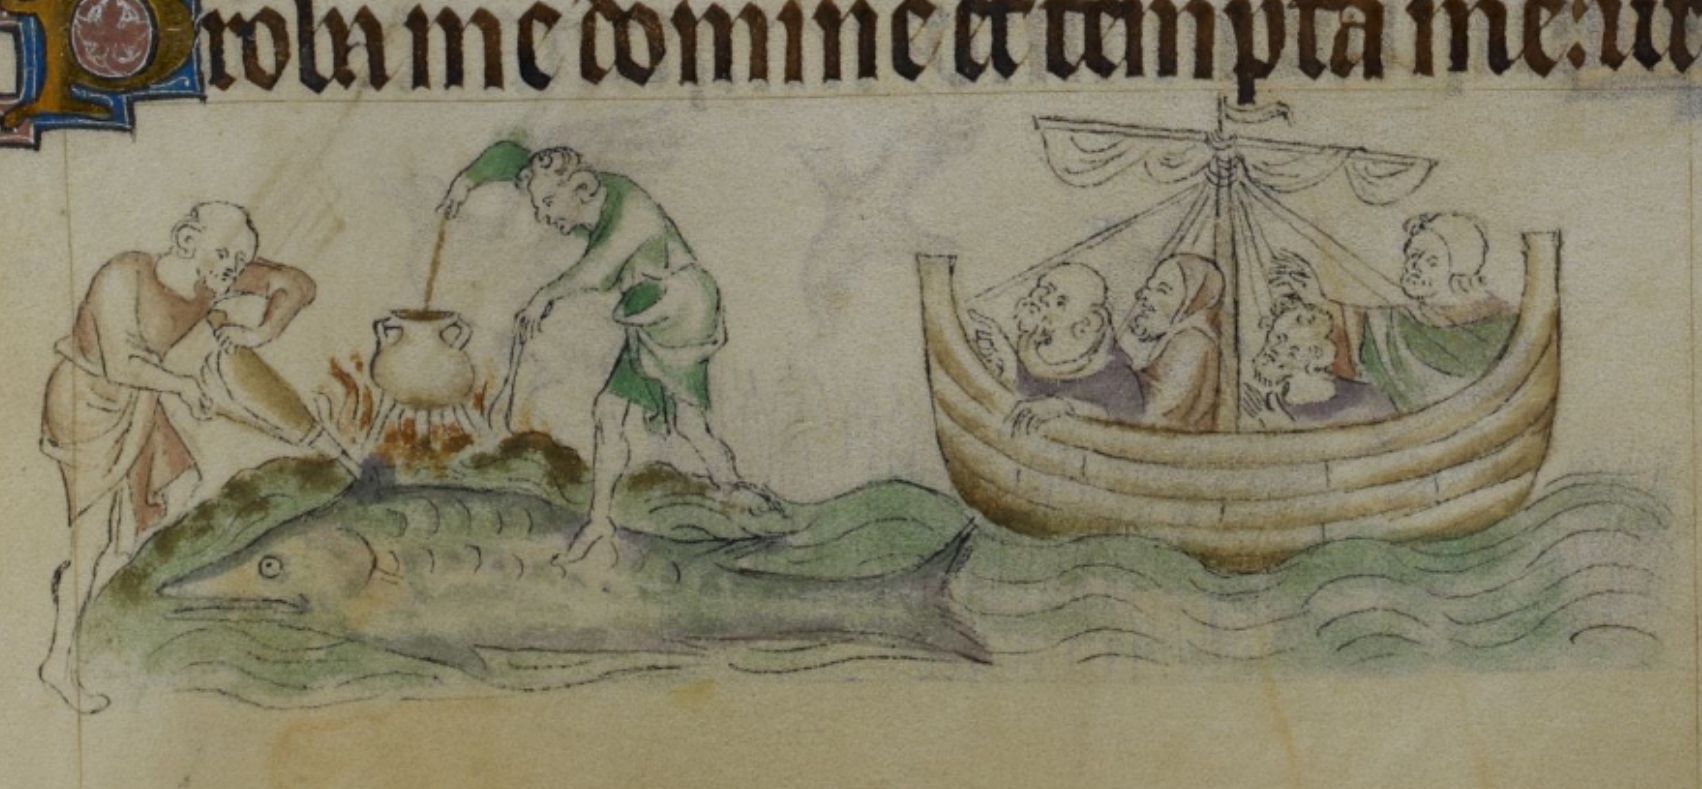 Proba me domine et tempta me: ure